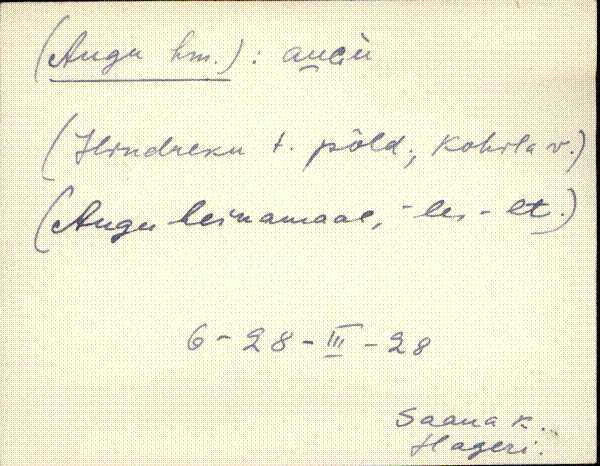 (Angu hm.):
(Hindreku t. põld, Kohila v.)
(Angu heinamaal, -le, -lt.)
6-28-III-28
Saana k.
Hageri.